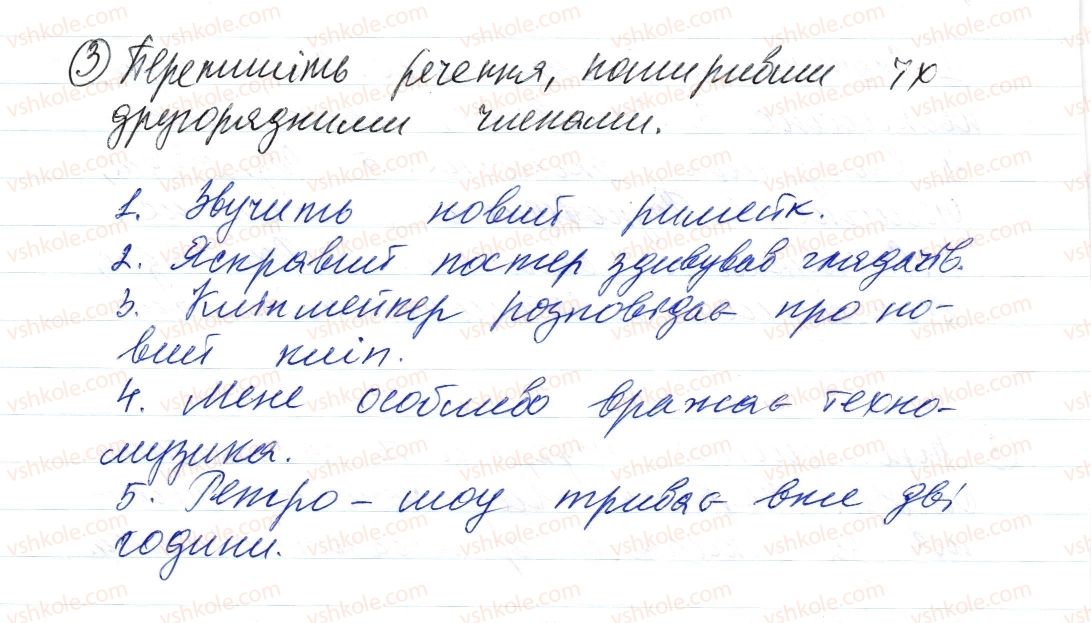 ③ Перепишіть речення, поширивши їх
другорядними членами.
1. Звучить новий римейк.
2. Яскравий постер здивував глядачів.
3. Кліпмейкер розповідає про но-
вий кліп.
4. Мене особливо вражає техно-
музика.
5. Ретро-шоу триває вже дві
години.